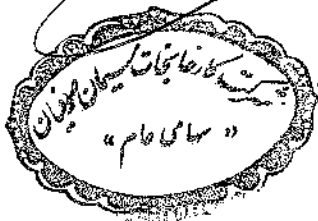 شرکت کارخانجات سیمان صوفیان
« سهامی عام »